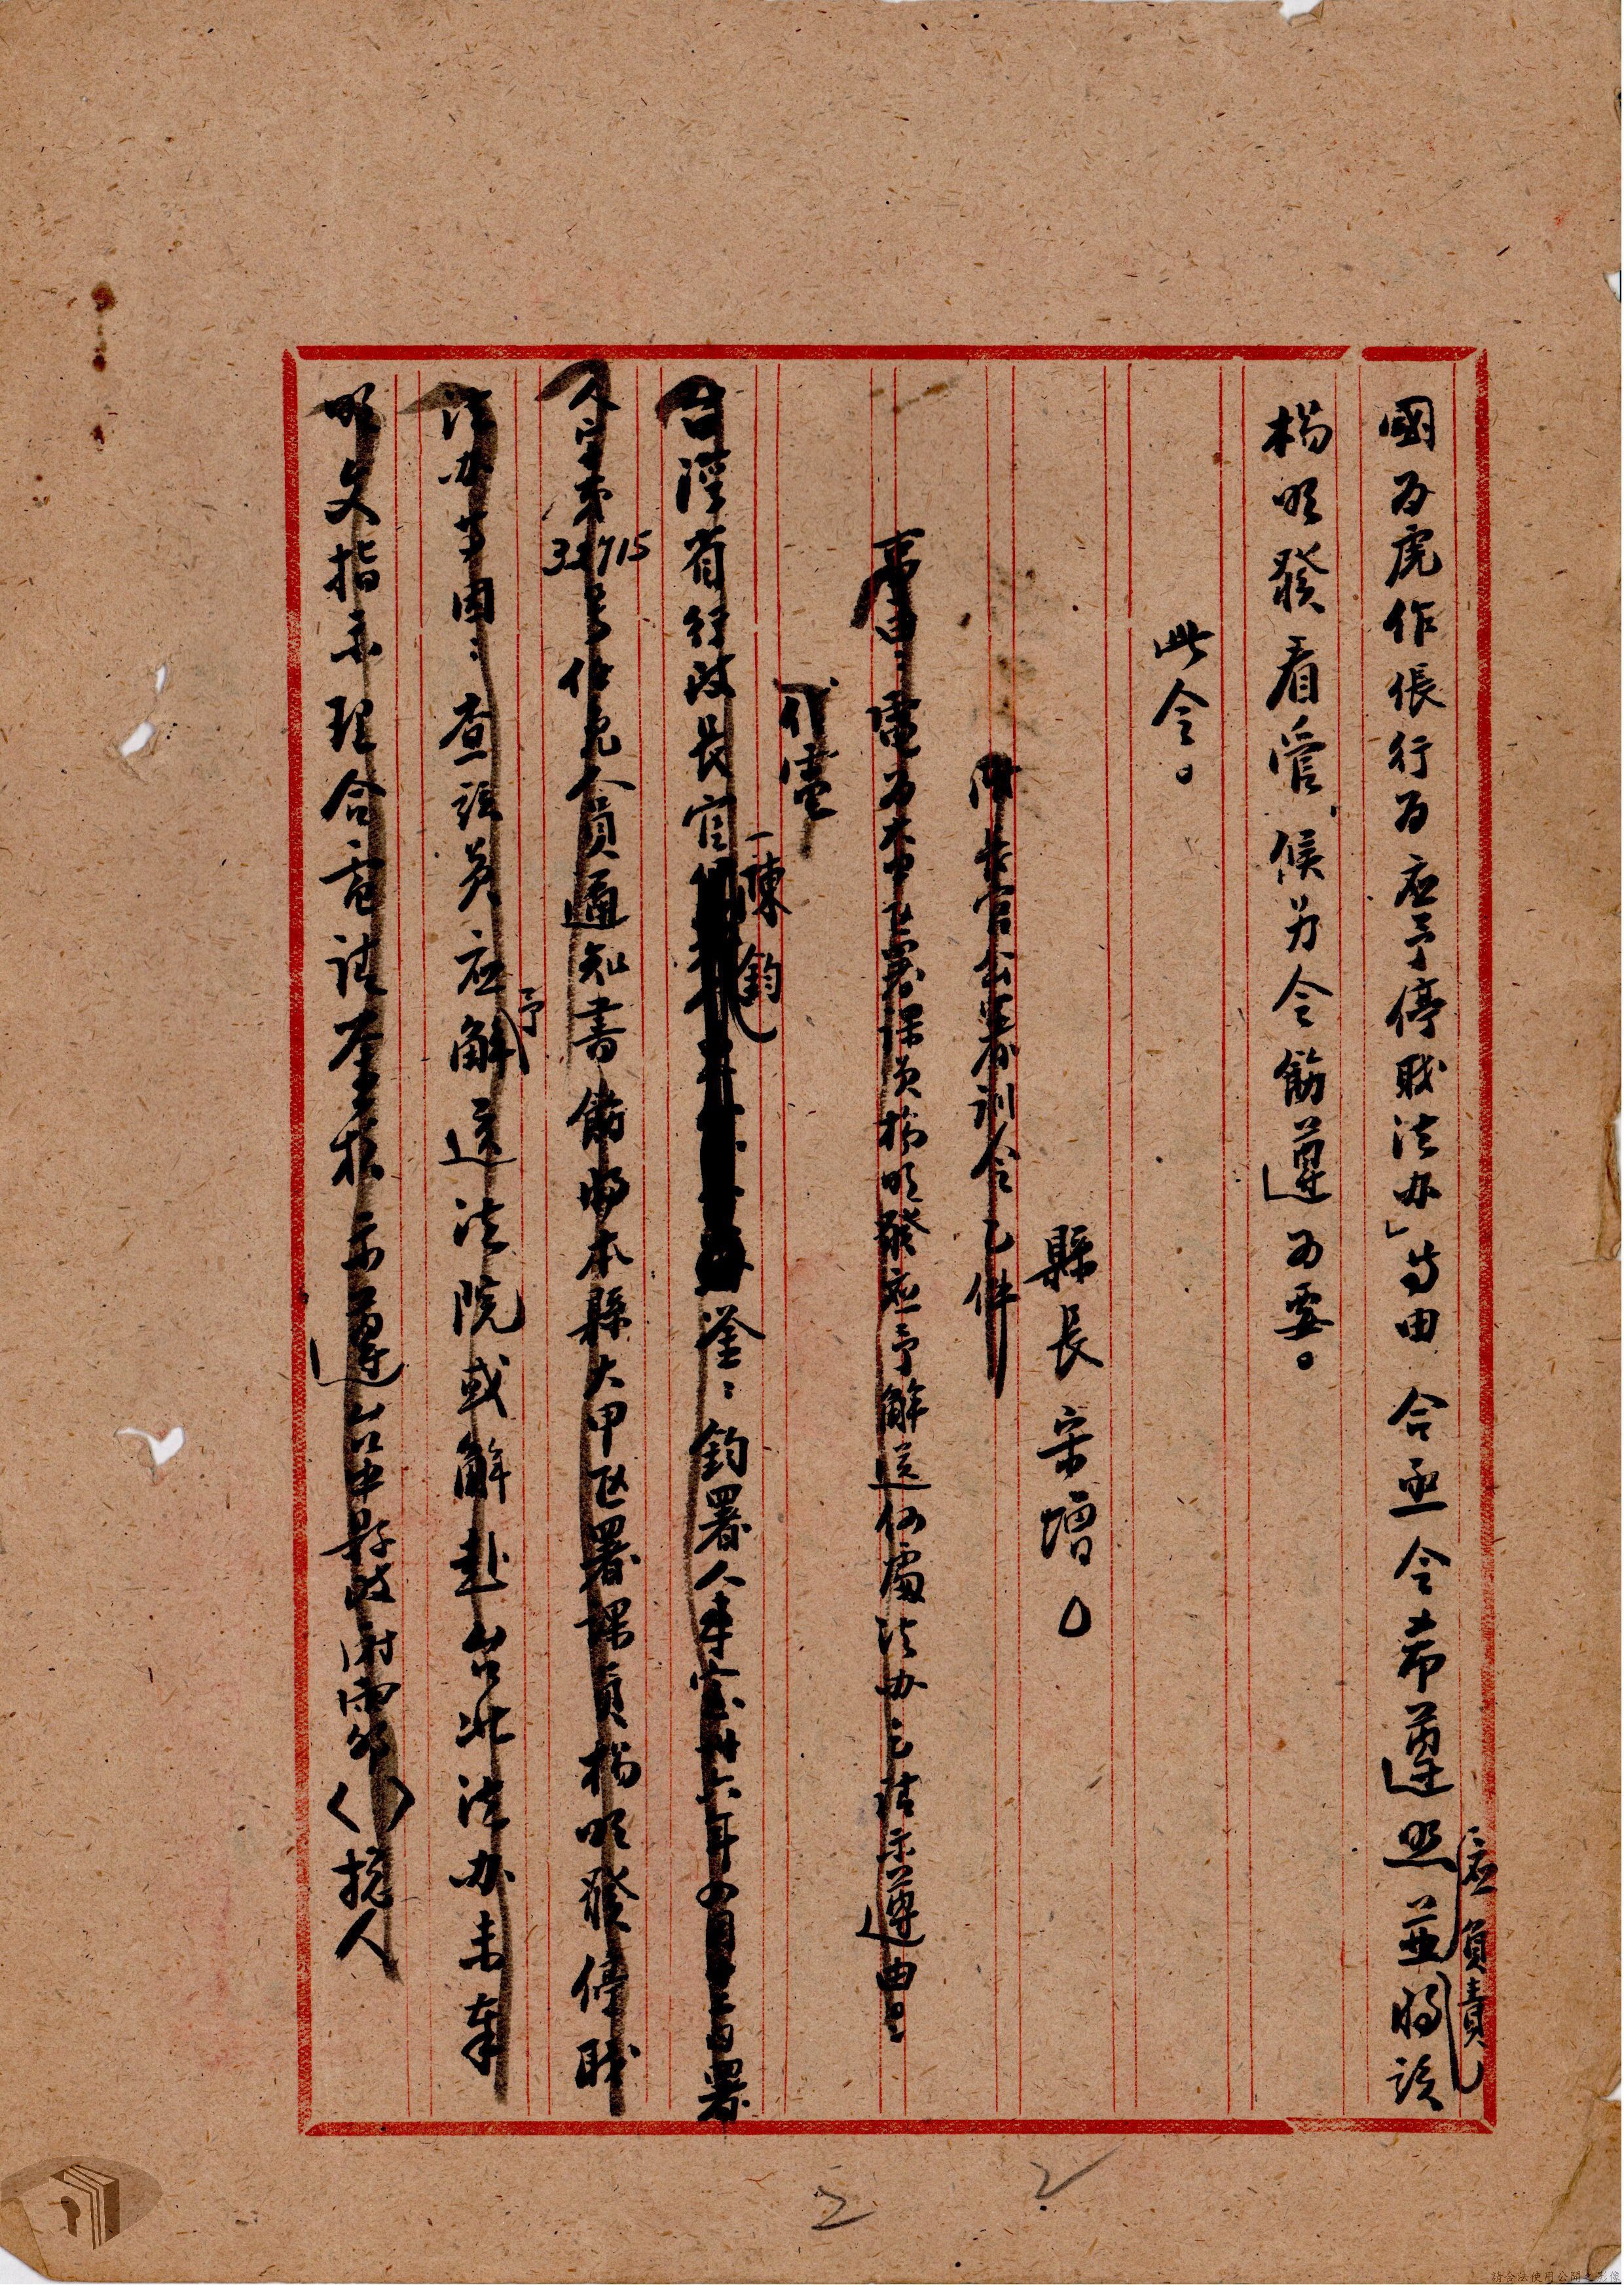 國為虎作倀行為應予停職法办」等由合亟令希遵照並將該
應負責
楊明發看管候另令飭遵為要。
此令。
縣長 宋增○
附長官公署訓令乙件
事由：電為本縣區署課員楊明發應予解送何處法办之請示遵由：
代電
台灣省行政長官
陳鈞
鑒：鈞署人事室卅六年 月 署
人字第32715号任免人員通知書飭將本縣大甲区署課員楊明發停職
法办等因；查該員應解送法院或解赴台北法办未奉
予
明文指示理合電請鑒核示遵台中縣政府 叩（ ）挽人
請合法使用公開之影像